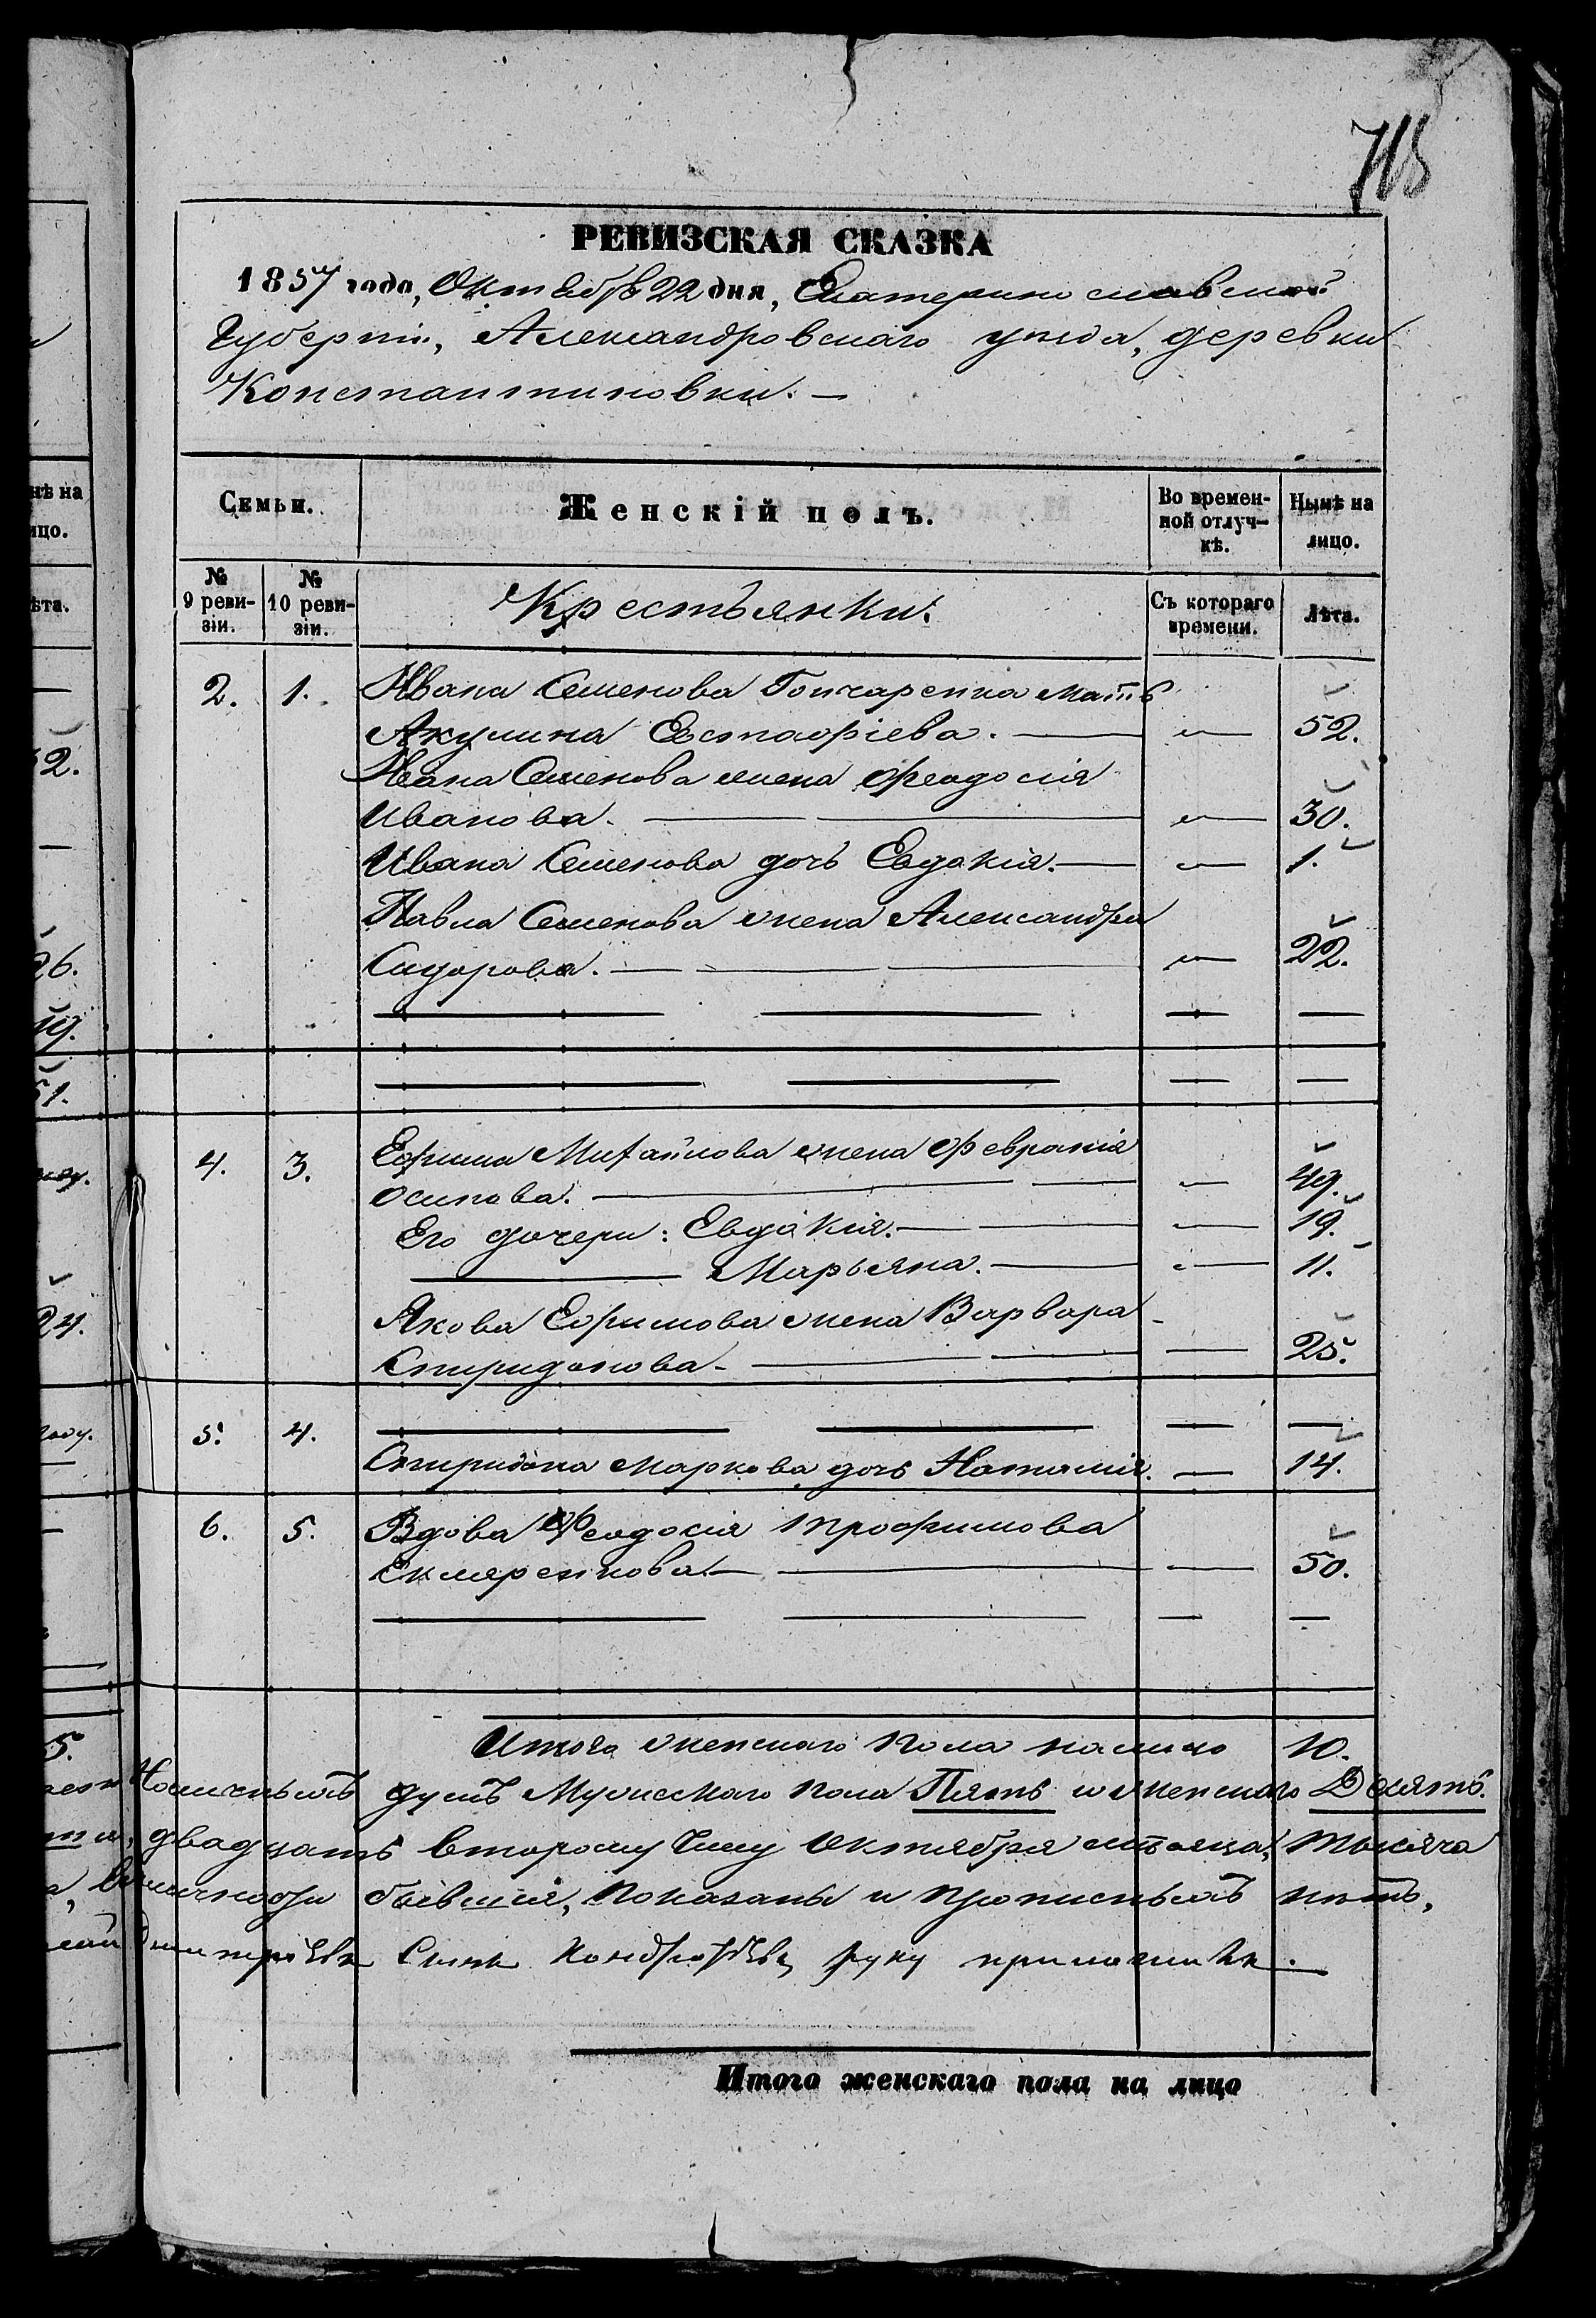 715
РЕВИЗСКАЯ СКАЗКА
1857 года, Октября 22 дня, Екатеринославской
Губерніи, Александровскаго уѣзда, деревни
Константиновки. —
Семьи.
Женскій полъ.
Во времен-
ной отлуч-
кѣ.
Нынѣ на
лицо.
№
9 реви-
зіи.
№
10 реви-
зіи.
Крестьянки.
Съ котораго
времени.
Лѣта.
2. 1. Ивана Семенова Гончаренка мать
Акулина Евстафіева. — — 52.
Ивана Семенова жена Феодосія
Иванова. — — 30.
Ивана Семенова дочь Евдокія. — — 1.
Павла Семенова жена Александра
Сидорова. — — 22.
4. 3. Ефима Михайлова жена Февронія
Осипова. — — 49.
Его дочери: Евдокія. — — 19.
— Марьяна. — — 11.
Якова Ефимова жена Варвара
Спиридонова — — 25.
5. 4. — — —
Спиридона Маркова дочь Наталія. — 14.
6. 5. Вдова Феодосія Трофимова
— — 50.
Итого женскаго пола налицо 10.
душъ Мужескаго пола Пять и женскаго Десять.
двадцать второму числу Октября мѣсяца, тысяча
бывшія, показаны и прописныхъ нѣтъ,
Сынъ руку приложилъ.
Итого женскаго пола на лицо
нѣ на
ицо.
ѣта.
52.
26.
19.
51.
24.
5.